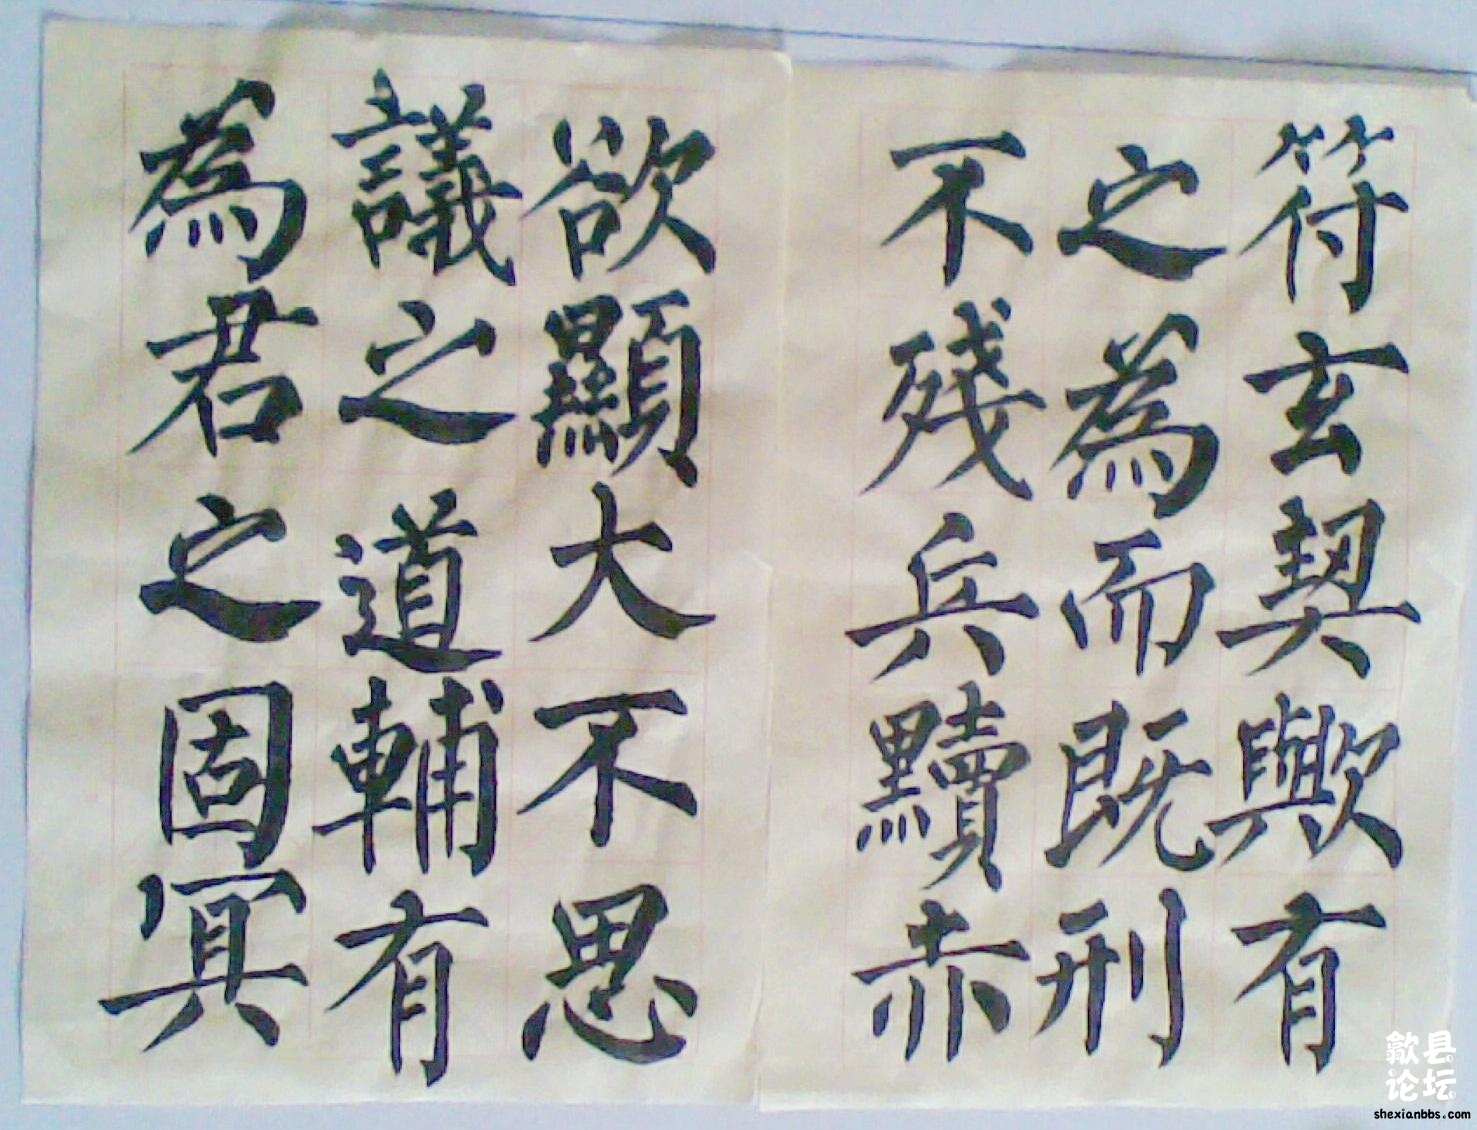 符玄契歟有
之為而既刑
不殘兵黷赤
欲顯大不思
議之道輔有
為君之固冥
歙县
论坛
shexianbbs.com